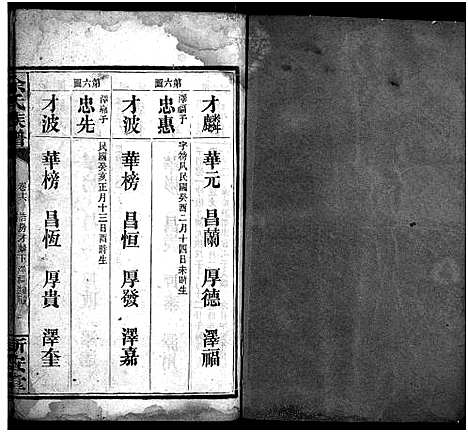 才麟 華元 昌蘭 厚德 澤福
第六圖
澤福子
忠惠 字特凡民國癸酉二月十四日未時生
才波 華榜 昌恒 厚發 澤嘉
第六圖
澤嘉子
忠先 民國癸亥正月十三日酉時生
才波 華榜 昌恆 厚貴 澤奎
余氏族譜
新安堂